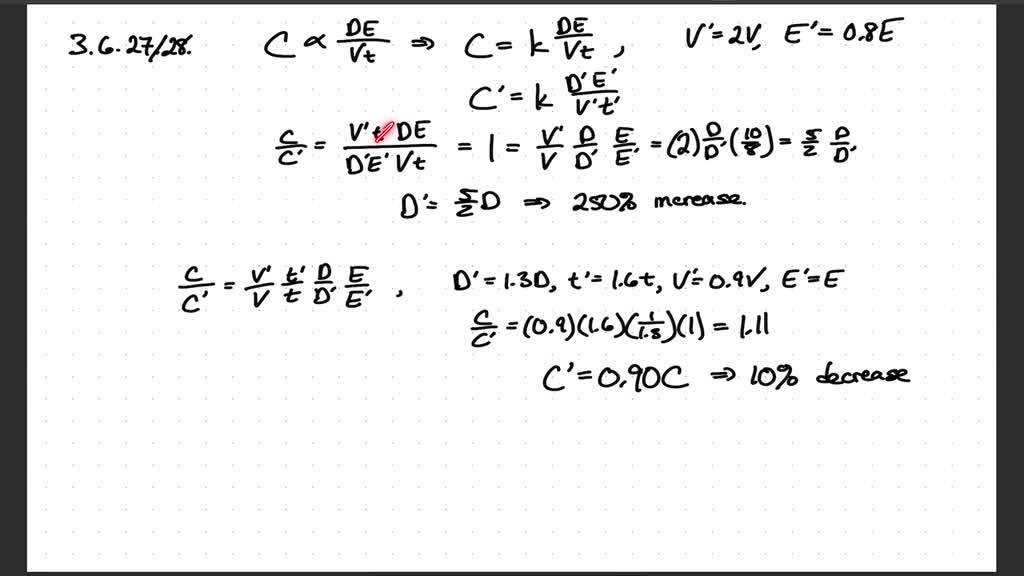 3.6.27/28. C ∝ DE/Vt ⇒ C = k DE/Vt, V' = 2V, E' = 0.8E
C' = k D'E'/V't'
C/C' = V't'DE/D'E'Vt = 1 = V'/V D/D' E/E' = (2) D/D' (10/8) = 5/2 D/D'
D' = 5/2 D ⇒ 250% increase.
C/C' = V'/V t'/t D/D' E/E', D' = 1.3D, t' = 1.6t, V' = 0.9V, E' = E
C/C' = (0.9)(1.6)(1/1.3)(1) = 1.11
C' = 0.90C ⇒ 10% decrease